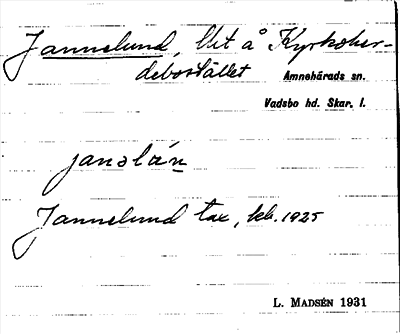 Jannelund, lht å Kyrkoher-
debostället
Amnehärads sn.
Vadsbo hd. Skar. l.
janəlún
Jannelund tax, kb. 1925
L. MADSÉN 1931